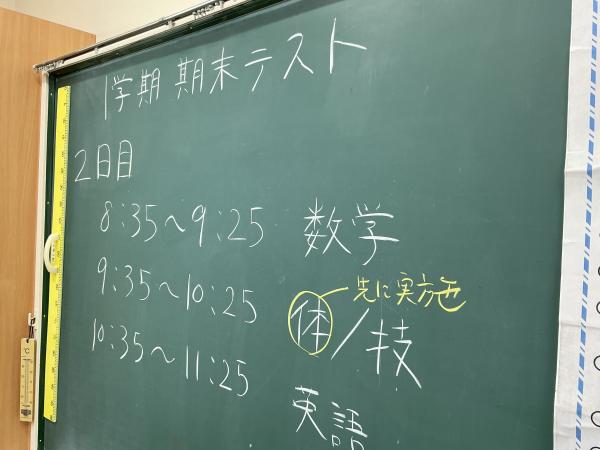 1学期 期末テスト
2日目
8:35～9:25 数学
先に実施
9:35～10:25 体/技
10:35～11:25 英語
℃